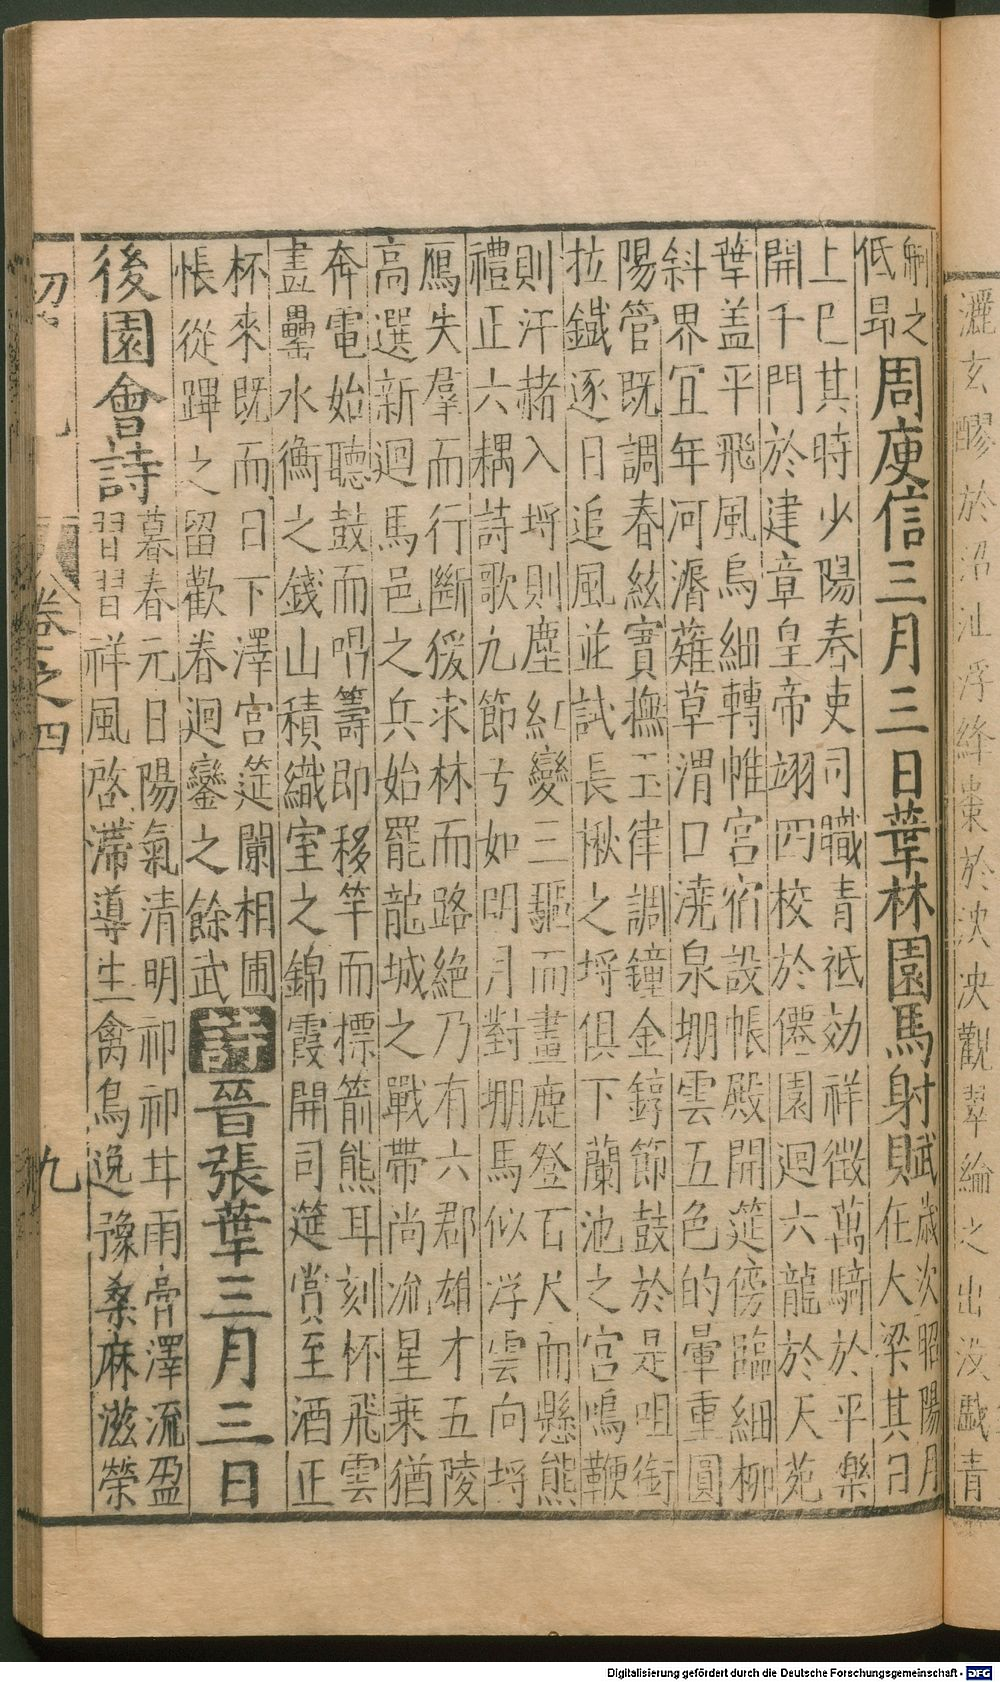 灑玄醪於沼沚浮絳棗於泱泱觀翠綸之出没戲青
舸之
低昂
周庾信三月三日華林園馬射賦
歲次昭陽月
在大梁其日
上巳其時少陽春吏司職青祇効祥徵萬騎於平樂
開千門於建章皇帝翊四校於僊園迴六龍於天苑
華盖平飛風烏細轉帷宮宿設帳殿開筵傍臨細柳
斜界宜年河湣薙草渭口澆泉堋雲五色的暈重圓
陽管既調春絃實撫玉律調鐘金錞節鼓於是咀銜
拉鐵逐日追風並試長楸之埒俱下蘭池之宮鳴鞭
則汗赭入埒則塵紅變三驅而畫鹿登百尺而懸熊
禮正六耦詩歌九節弓如明月對堋馬似浮雲向埒
鴈失羣而行斷猨求林而路絶乃有六郡雄才五陵
高選新迴馬邑之兵始罷龍城之戰帶尚流星乗猶
奔電始聽鼓而唱籌即移竿而摽箭熊耳刻杯飛雲
畫罍水衡之錢山積織室之錦霞開司筵賞至酒正
杯來既而日下澤宮筵闌相圃
悵從蹕之留歡眷迴鑾之餘武
詩晉張華三月三日
後園會詩
暮春元日陽氣清明祁祁甘雨膏澤流盈
習習祥風啓滯導生禽鳥逸豫桑麻滋榮
卷之四
九
Digitalisierung gefördert durch die Deutsche Forschungsgemeinschaft - DFG